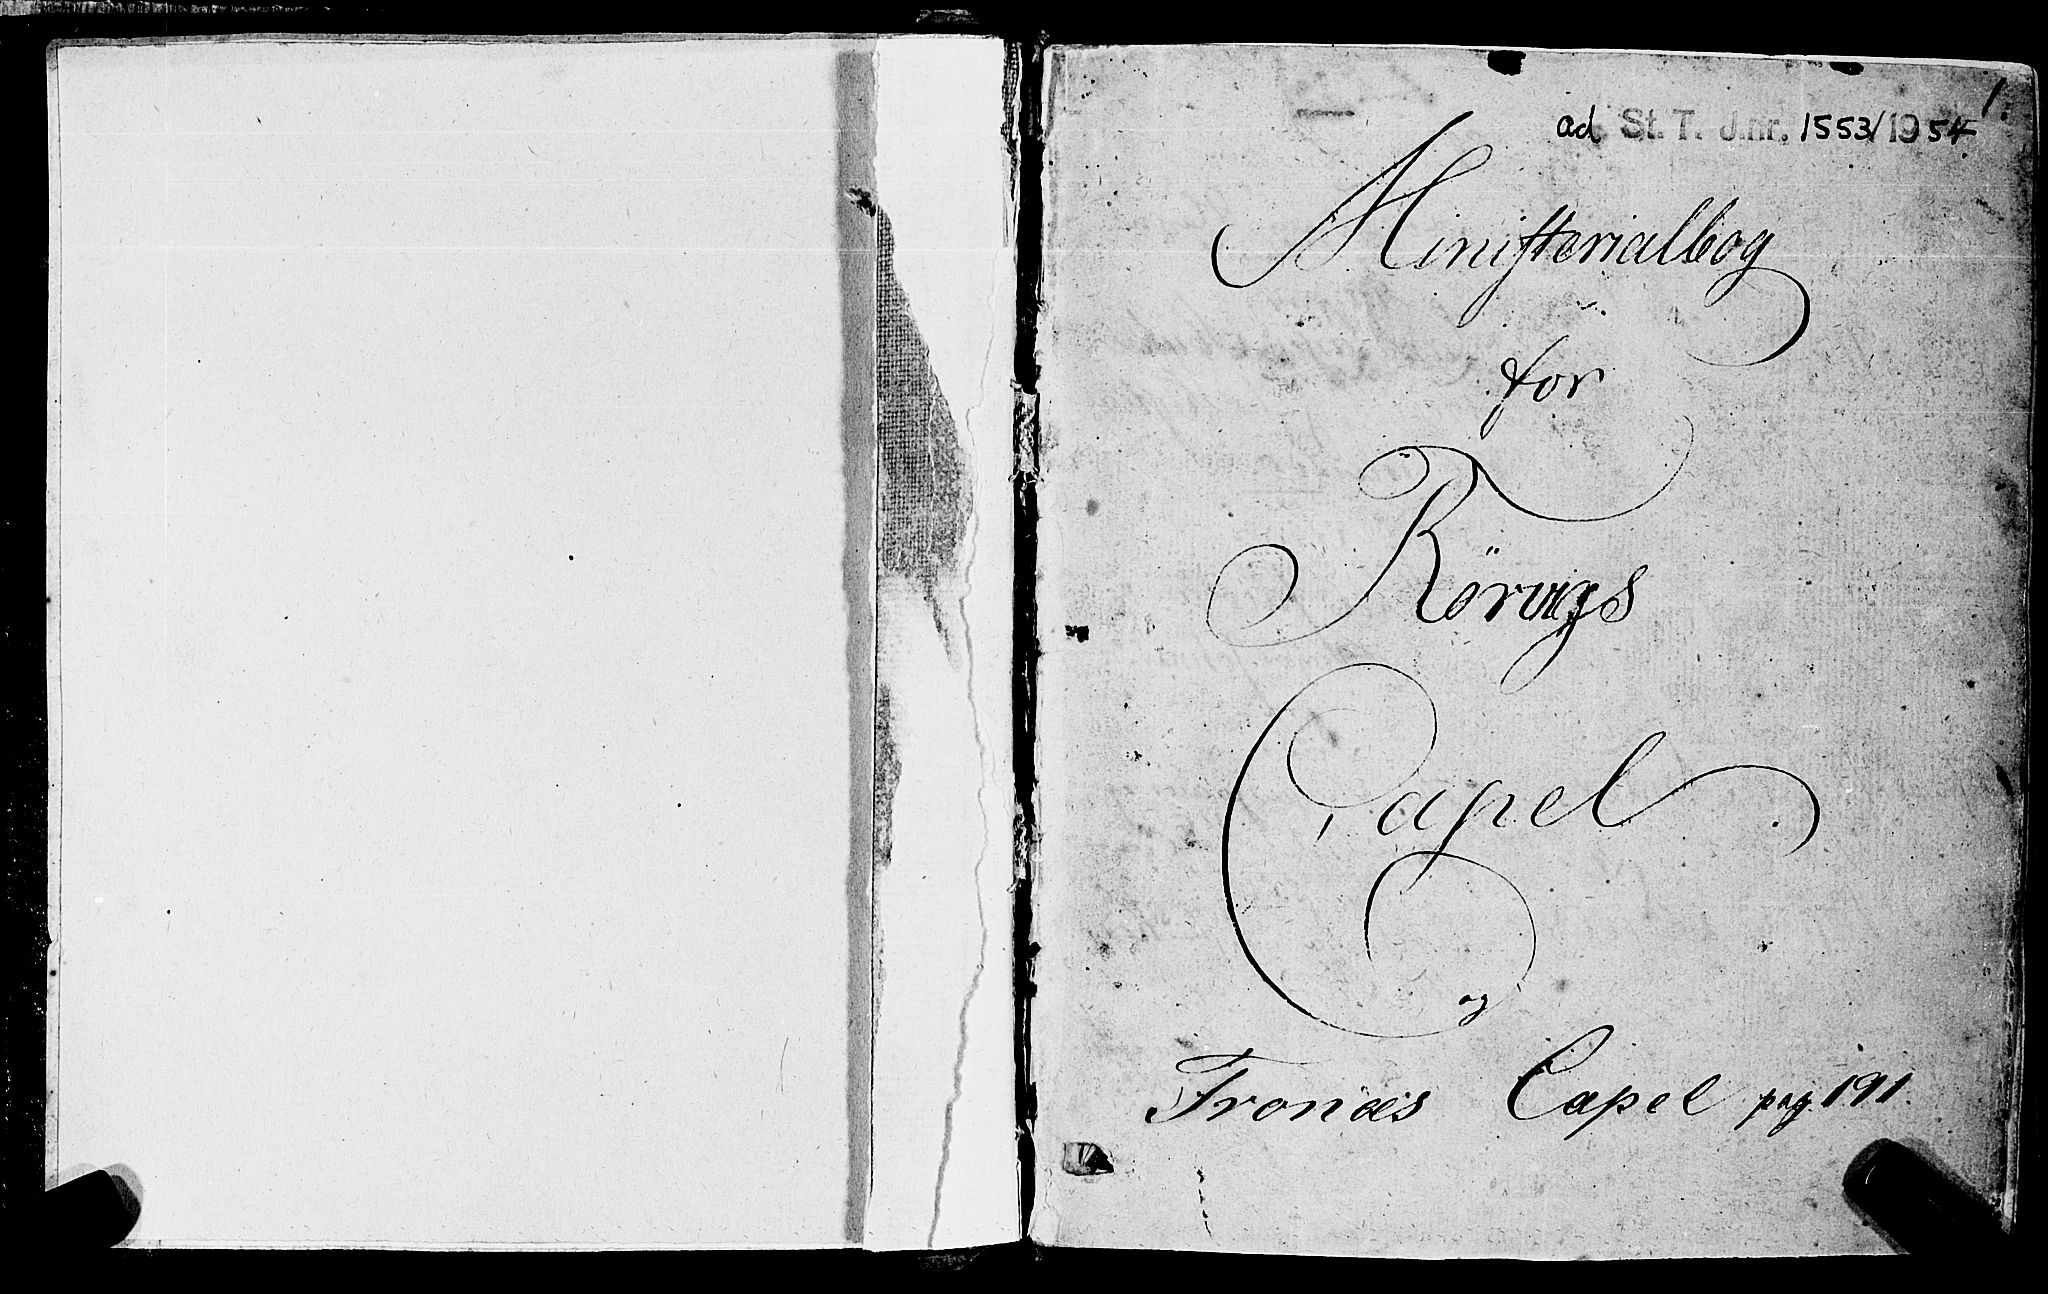 1.
ad St. T. J.nr. 1553/1954.
Ministerialbog
for
Rörvigs
Capel
og
Fronæs Capel pag. 191.